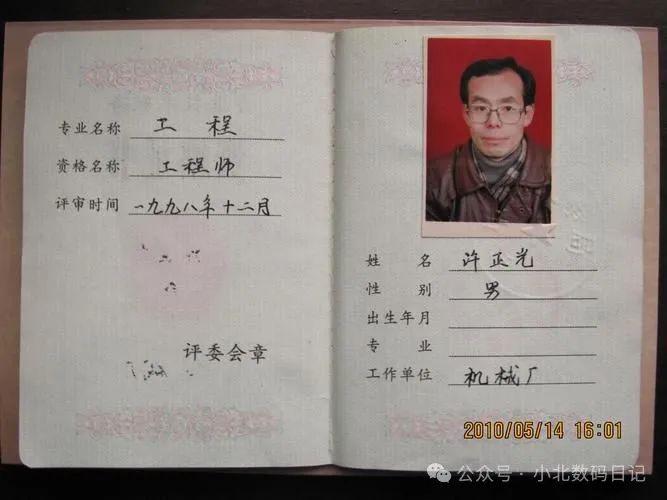 专业名称 工 程
资格名称 工程师
评审时间 一九九八年十二月
评委会章
姓 名 许正光
性 别 男
出生年月
专 业
工作单位 机械厂
2010/05/14 16:01
公众号 · 小北数码日记